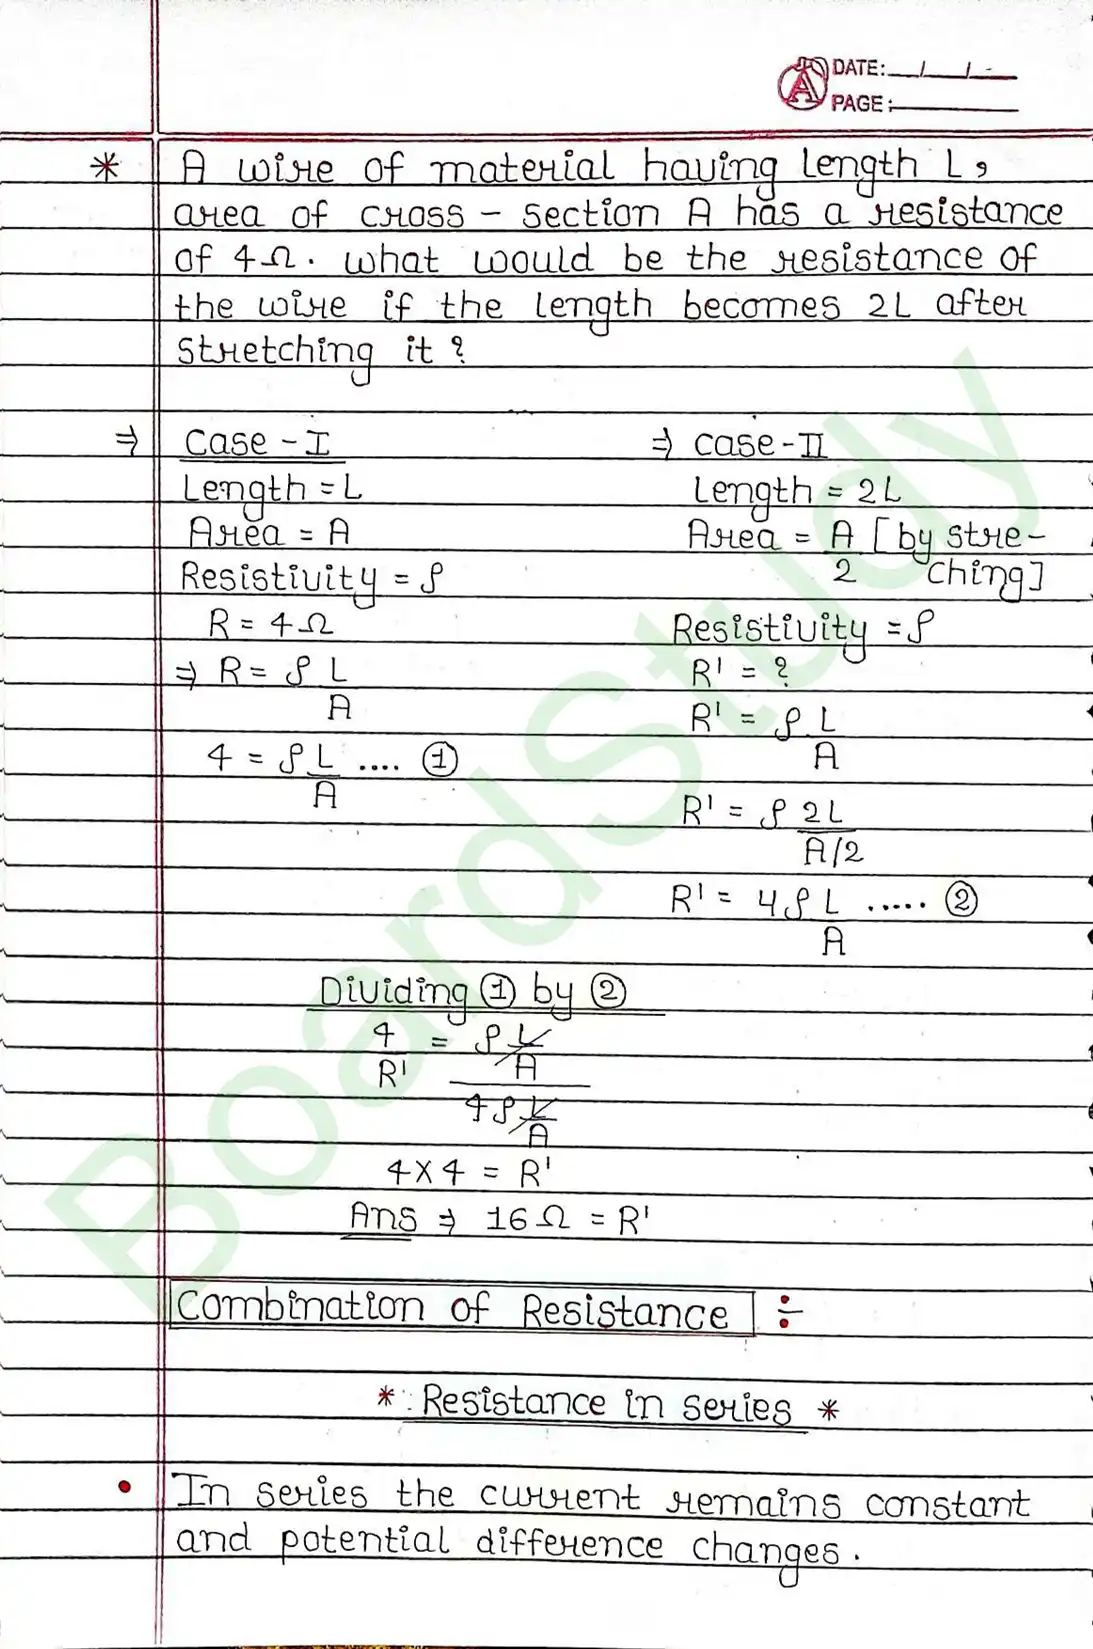 DATE: / /
PAGE:
* A wire of material having length L,
area of cross-section A has a resistance
of 4Ω. what would be the resistance of
the wire if the length becomes 2L after
stretching it?
⇒ Case-I ⇒ case-II
Length = L Length = 2L
Area = A Area = A/2 [by stre-
ching]
Resistivity = ρ
R = 4Ω Resistivity = ρ
⇒ R = ρ L/A R' = ?
R' = ρ L/A
4 = ρ L/A .... ①
R' = ρ 2L/A/2
R' = 4ρ L/A ..... ②
Dividing ① by ②
4/R' = ρ L/A / 4ρ L/A
4 X 4 = R'
Ans ⇒ 16Ω = R'
Combination of Resistance ÷
* Resistance in series *
• In series the current remains constant
and potential difference changes.
BoardStudy